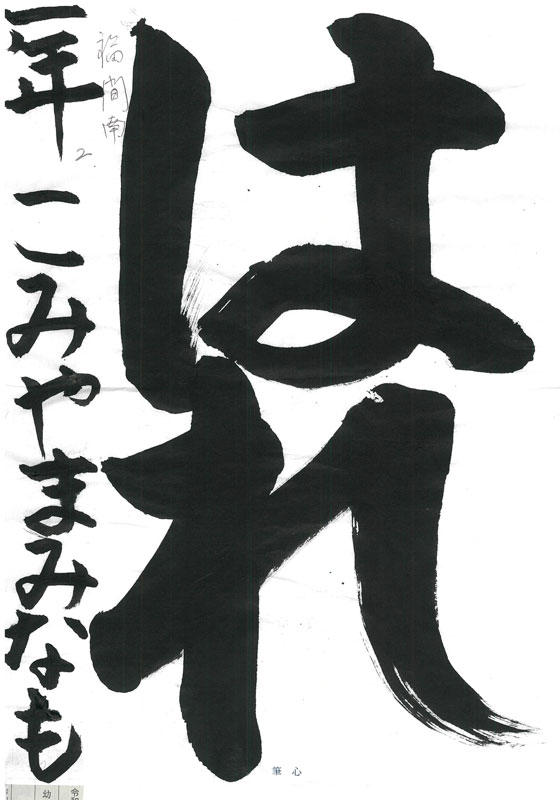 はれ
福間南
2.
一年 こみやまみなも
筆心
令和
幼